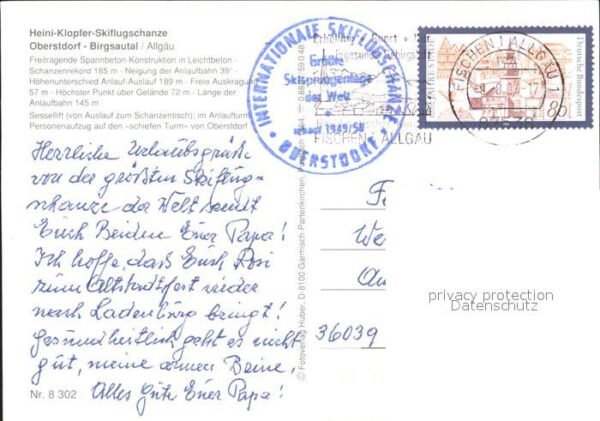 Heini-Klopfer-Skiflugschanze
Oberstdorf - Birgsautal / Allgäu
Freitragende Spannbeton-Konstruktion in Leichtbeton -
Schanzenrekord 185 m - Neigung der Anlaufbahn 39° -
Höhenunterschied Anlauf-Auslauf 189 m - Freie Auskragung
57 m - Höchster Punkt über Gelände 72 m - Länge der
Anlaufbahn 145 m
Sessellift (von Auslauf zum Schanzentisch), im Anlaufturm
Personenaufzug auf den «schiefen Turm» von Oberstdorf
INTERNATIONALE SKIFLUGSCHANZE
Größte
Skisprunganlage
der Welt
erbaut 1949/50
OBERSTDORF
FISCHEN I ALLGÄU 1
FISCHEN / ALLGÄU
Deutsche Bundespost
80
Herrliche Urlaubsgrüße
von der größten Skiflug-
schanze der Welt sendt
Euch Beiden Euer Papa!
Ich hoffe, daß Euch Rosi
zum Altstadtfest wieder
nach Ladenburg bringt!
Gesundheitlich geht es nicht
gut, meine armen Beine.
Alles Gute Euer Papa!
Nr. 8 302
© Fotoverlag Huber, D-8100 Garmisch-Partenkirchen,
36039
privacy protection
Datenschutz